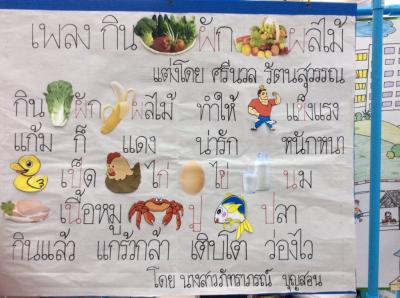 เพลง กินผัก ผลไม้
แต่งโดย ศรีนวล รัตนสุวรรณ
กิน ผัก ผลไม้ ทำให้ แข็งแรง
แก้ม ก็ แดง น่ารัก หนักหนา
เป็ด ไก่ ไข่ นม
เนื้อหมู ปู ปลา
กินแล้ว แกร้วกล้า เติบโต ว่องไว
โดย นางสาวภัทราภรณ์ บุญสอน